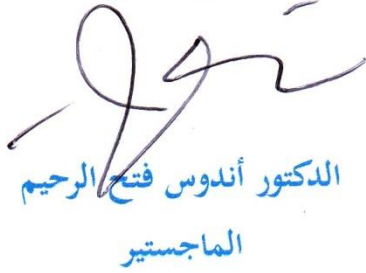 الدكتور أندوس فتح الرحيم
الماجستير